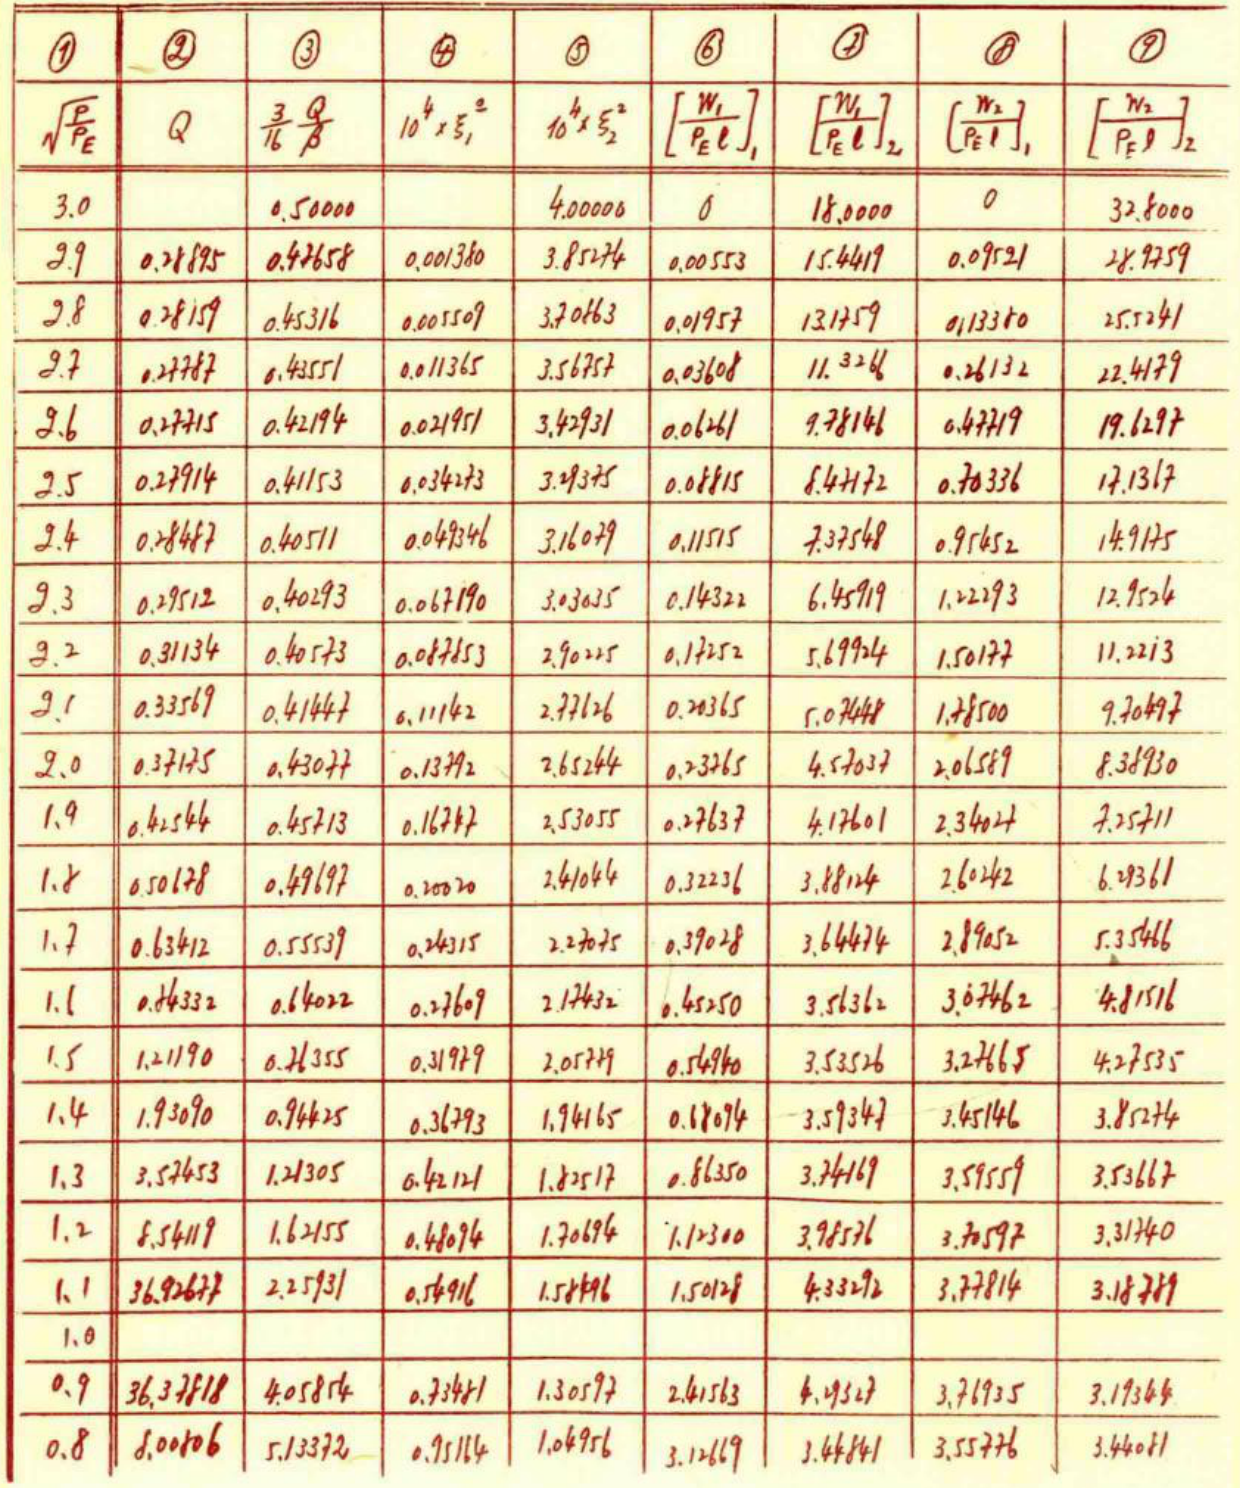 ① ② ③ ④ ⑤ ⑥ ⑦ ⑧ ⑨
√(P/P_E) Q 3/16 Q/β 10⁴ × ξ₁² 10⁴ × ξ₂² [W₁/P_E ℓ]₁ [W₁/P_E ℓ]₂ [W₂/P_E ℓ]₁ [W₂/P_E ℓ]₂
3.0 0.50000 4.00000 0 18.0000 0 32.8000
2.9 0.28895 0.47658 0.001380 3.85274 0.00553 15.4419 0.09521 28.9759
2.8 0.28159 0.45316 0.005509 3.70863 0.01957 13.1759 0.13380 25.5241
2.7 0.27787 0.43551 0.011365 3.56757 0.03608 11.3266 0.26132 22.4179
2.6 0.27715 0.42194 0.021951 3.42931 0.06261 9.78146 0.47719 19.6297
2.5 0.27914 0.41153 0.034273 3.29375 0.08815 8.47172 0.70336 17.1367
2.4 0.28487 0.40511 0.049346 3.16079 0.11515 7.37548 0.95452 14.9175
2.3 0.29512 0.40293 0.067190 3.03035 0.14322 6.45919 1.22293 12.9524
2.2 0.31134 0.40573 0.087853 2.90225 0.17252 5.69924 1.50177 11.2213
2.1 0.33569 0.41447 0.11142 2.77626 0.20365 5.07448 1.78500 9.70497
2.0 0.37175 0.43077 0.13792 2.65244 0.23765 4.57037 2.06589 8.38930
1.9 0.42544 0.45713 0.16747 2.53055 0.27637 4.17601 2.34027 7.25711
1.8 0.50678 0.49697 0.20020 2.41044 0.32236 3.88124 2.60242 6.29361
1.7 0.63412 0.55539 0.24315 2.27075 0.39028 3.64474 2.89052 5.35466
1.6 0.84332 0.64022 0.27609 2.17432 0.45250 3.56362 3.07462 4.81516
1.5 1.21190 0.76355 0.31979 2.05779 0.54940 3.53526 3.27665 4.27535
1.4 1.93090 0.94425 0.36793 1.94165 0.68094 3.59347 3.45146 3.85274
1.3 3.57453 1.21305 0.42121 1.82517 0.86350 3.74169 3.59559 3.53667
1.2 8.54119 1.62155 0.48094 1.70694 1.12300 3.98576 3.70597 3.31740
1.1 36.92677 2.25931 0.54916 1.58496 1.50128 4.33292 3.77814 3.18789
1.0
0.9 36.37818 4.05854 0.73481 1.30597 2.41563 4.29327 3.76935 3.19344
0.8 8.00806 5.13372 0.95164 1.04956 3.12669 3.44841 3.55776 3.44081